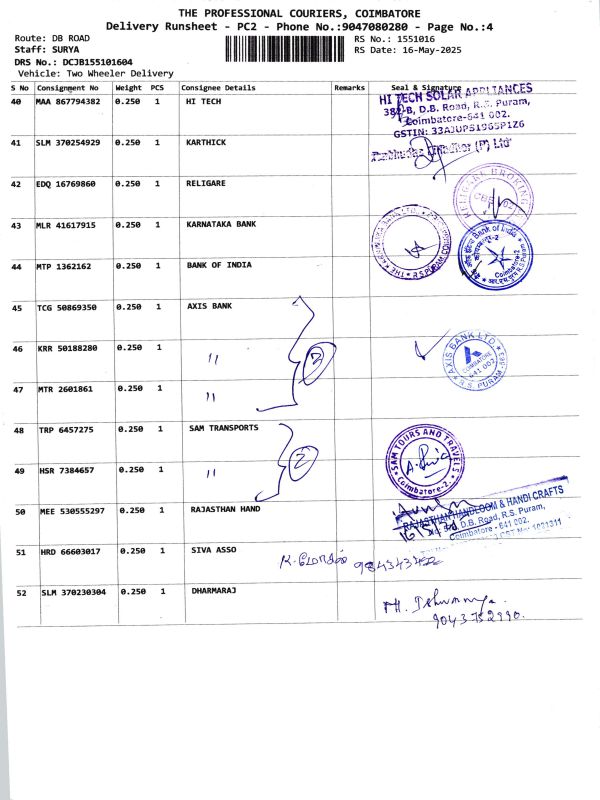 THE PROFESSIONAL COURIERS, COIMBATORE
Delivery Runsheet - PC2 - Phone No.:9047080280 - Page No.:4
Route: DB ROAD RS No.: 1551016
Staff: SURYA RS Date: 16-May-2025
DRS No.: DCJB155101604
Vehicle: Two Wheeler Delivery
S No Consignment No Weight PCS Consignee Details Remarks Seal & Signature
40 MAA 867794382 0.250 1 HI TECH
HI TECH SOLAR APPLIANCES
D.B. Road, R.S. Puram,
Coimbatore-641 002.
41 SLM 370254929 0.250 1 KARTHICK
(P) Ltd
42 EDQ 16769860 0.250 1 RELIGARE
RELIGARE BROKING
43 MLR 41617915 0.250 1 KARNATAKA BANK
R.S.PURAM
44 MTP 1362162 0.250 1 BANK OF INDIA
Bank of India
Coimbatore-2
45 TCG 50869350 0.250 1 AXIS BANK
46 KRR 50188280 0.250 1 "
3
AXIS BANK LTD.
COIMBATORE
641 002
R.S. PURAM
47 MTR 2601861 0.250 1 "
48 TRP 6457275 0.250 1 SAM TRANSPORTS
SAM TOURS AND TRAVELS
Coimbatore-2.
2
49 HSR 7384657 0.250 1 "
50 MEE 530555297 0.250 1 RAJASTHAN HAND
RAJASTHAN HANDLOOM & HANDI CRAFTS
D.B. Road, R.S. Puram,
Coimbatore - 641 002.
51 HRD 66603017 0.250 1 SIVA ASSO
52 SLM 370230304 0.250 1 DHARMARAJ